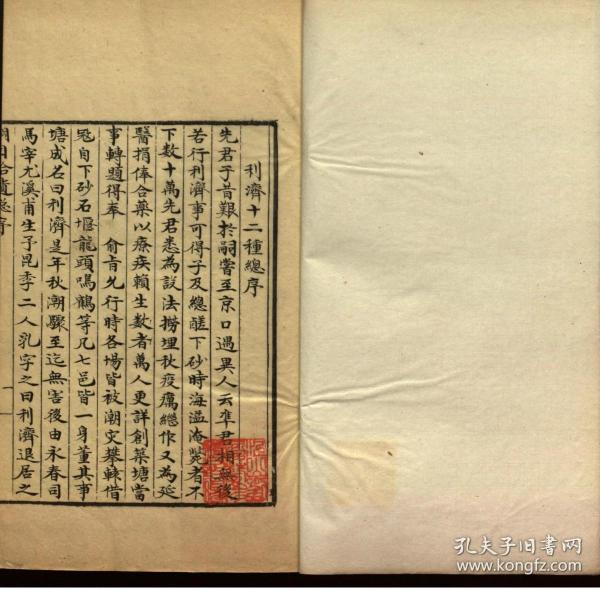 利濟十二種總序
先君子昔艱於嗣嘗至京口遇異人云準君相無後
若行利濟事可得子及總醝下砂時海溢淹斃者不
下數十萬先君悉為設法撈埋秋疫癘繼作又為延
醫捐俸合藥以療疾賴生數者萬人更詳創築塘當
事轉題得奉 俞旨允行時各場皆被潮灾攀轅借
冦自下砂石堰龍頭鳴鶴等凡七邑皆一身董其事
塘成名曰利濟是年秋潮驟至迄無害後由永春司
馬宰尤溪甫生予昆季二人乳字之曰利濟退居之
孔夫子旧书网
www.kongfz.com